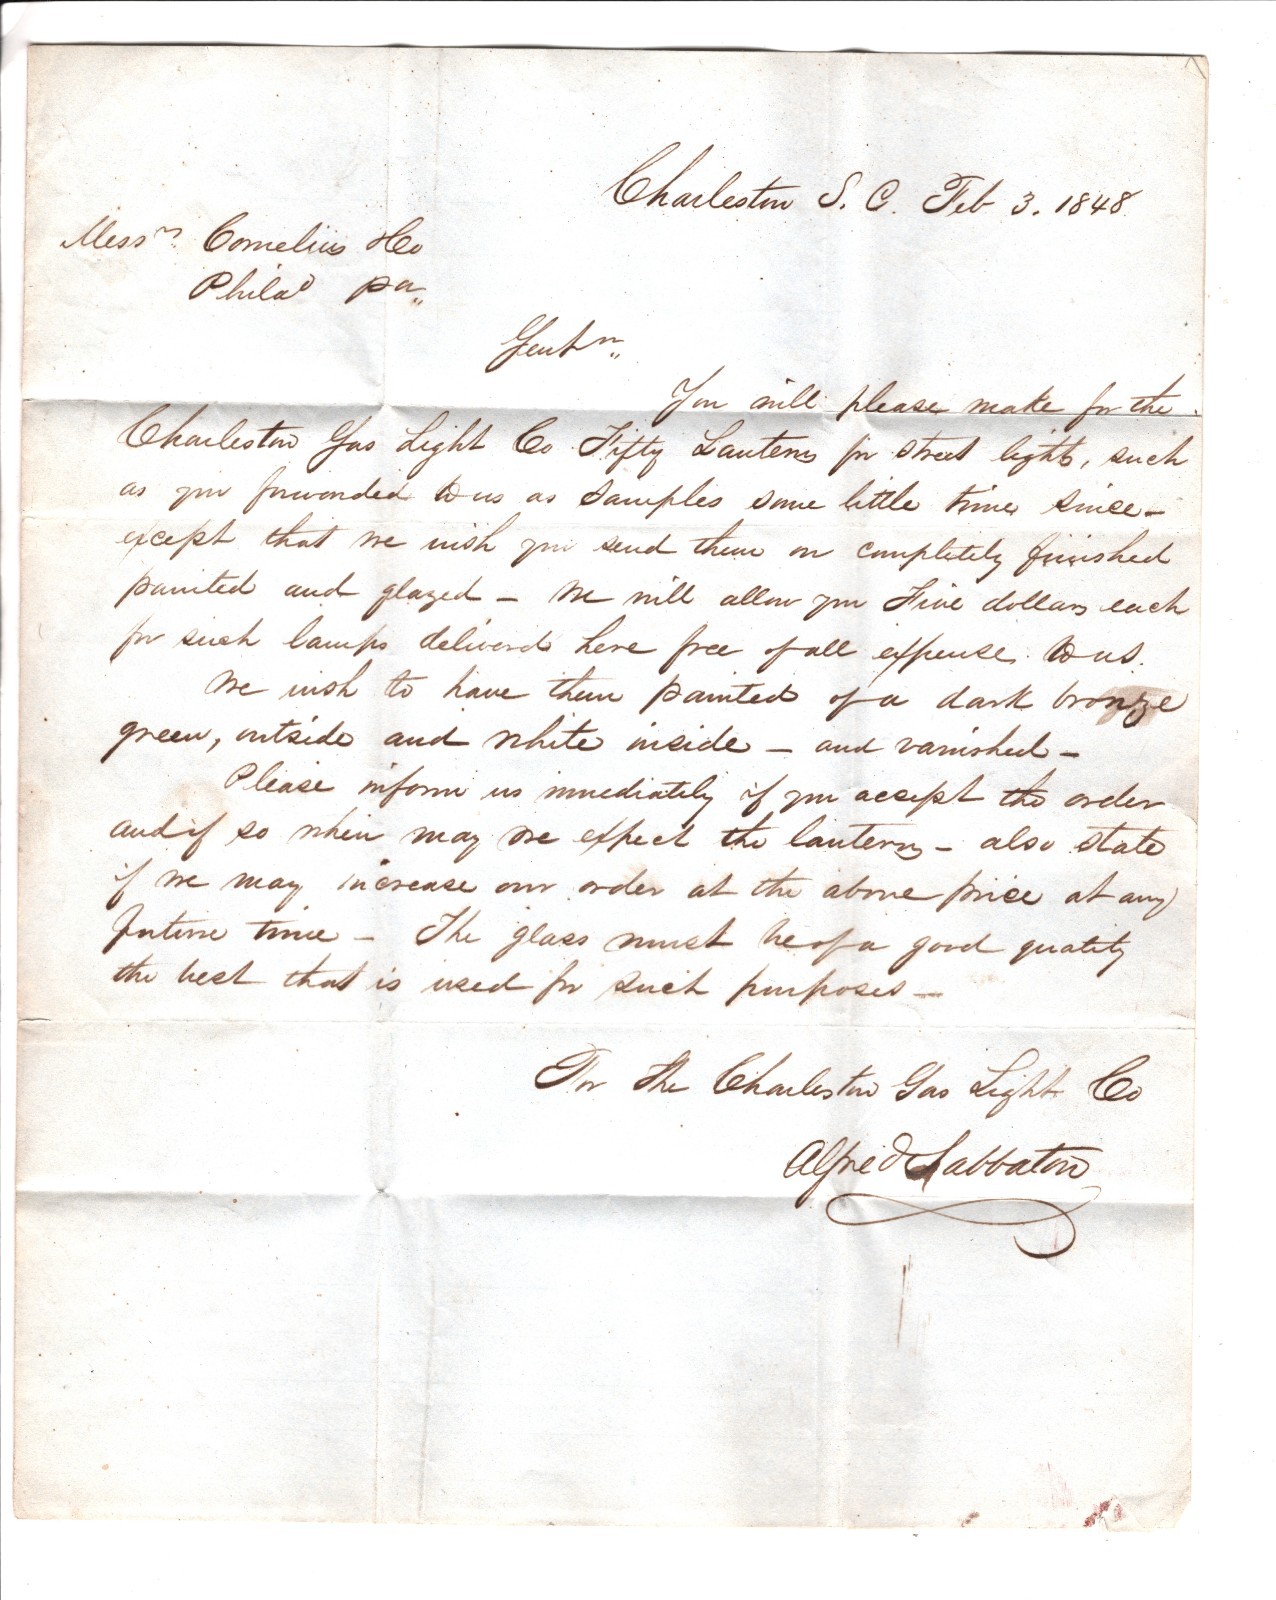 Charleston S. C. Feb 3. 1848
Messrs Cornelius & Co
Philada Pa
Gentn
You will please make for the
Charleston Gas Light Co Fifty Lanterns for street lights, such
as you forwarded to us as samples some little time since –
except that we wish you send them on completely finished
painted and glazed – We will allow you Five dollars each
for such lamps delivered here free of all expense to us.
We wish to have them painted of a dark bronze
green, outside and white inside – and varnished –
Please inform us immediately if you accept the order
and if so when may we expect the lanterns – also state
if we may increase our order at the above price at any
future time – The glass must be of a good quality
the best that is used for such purposes –
For the Charleston Gas Light Co
Alfred Sabbaton